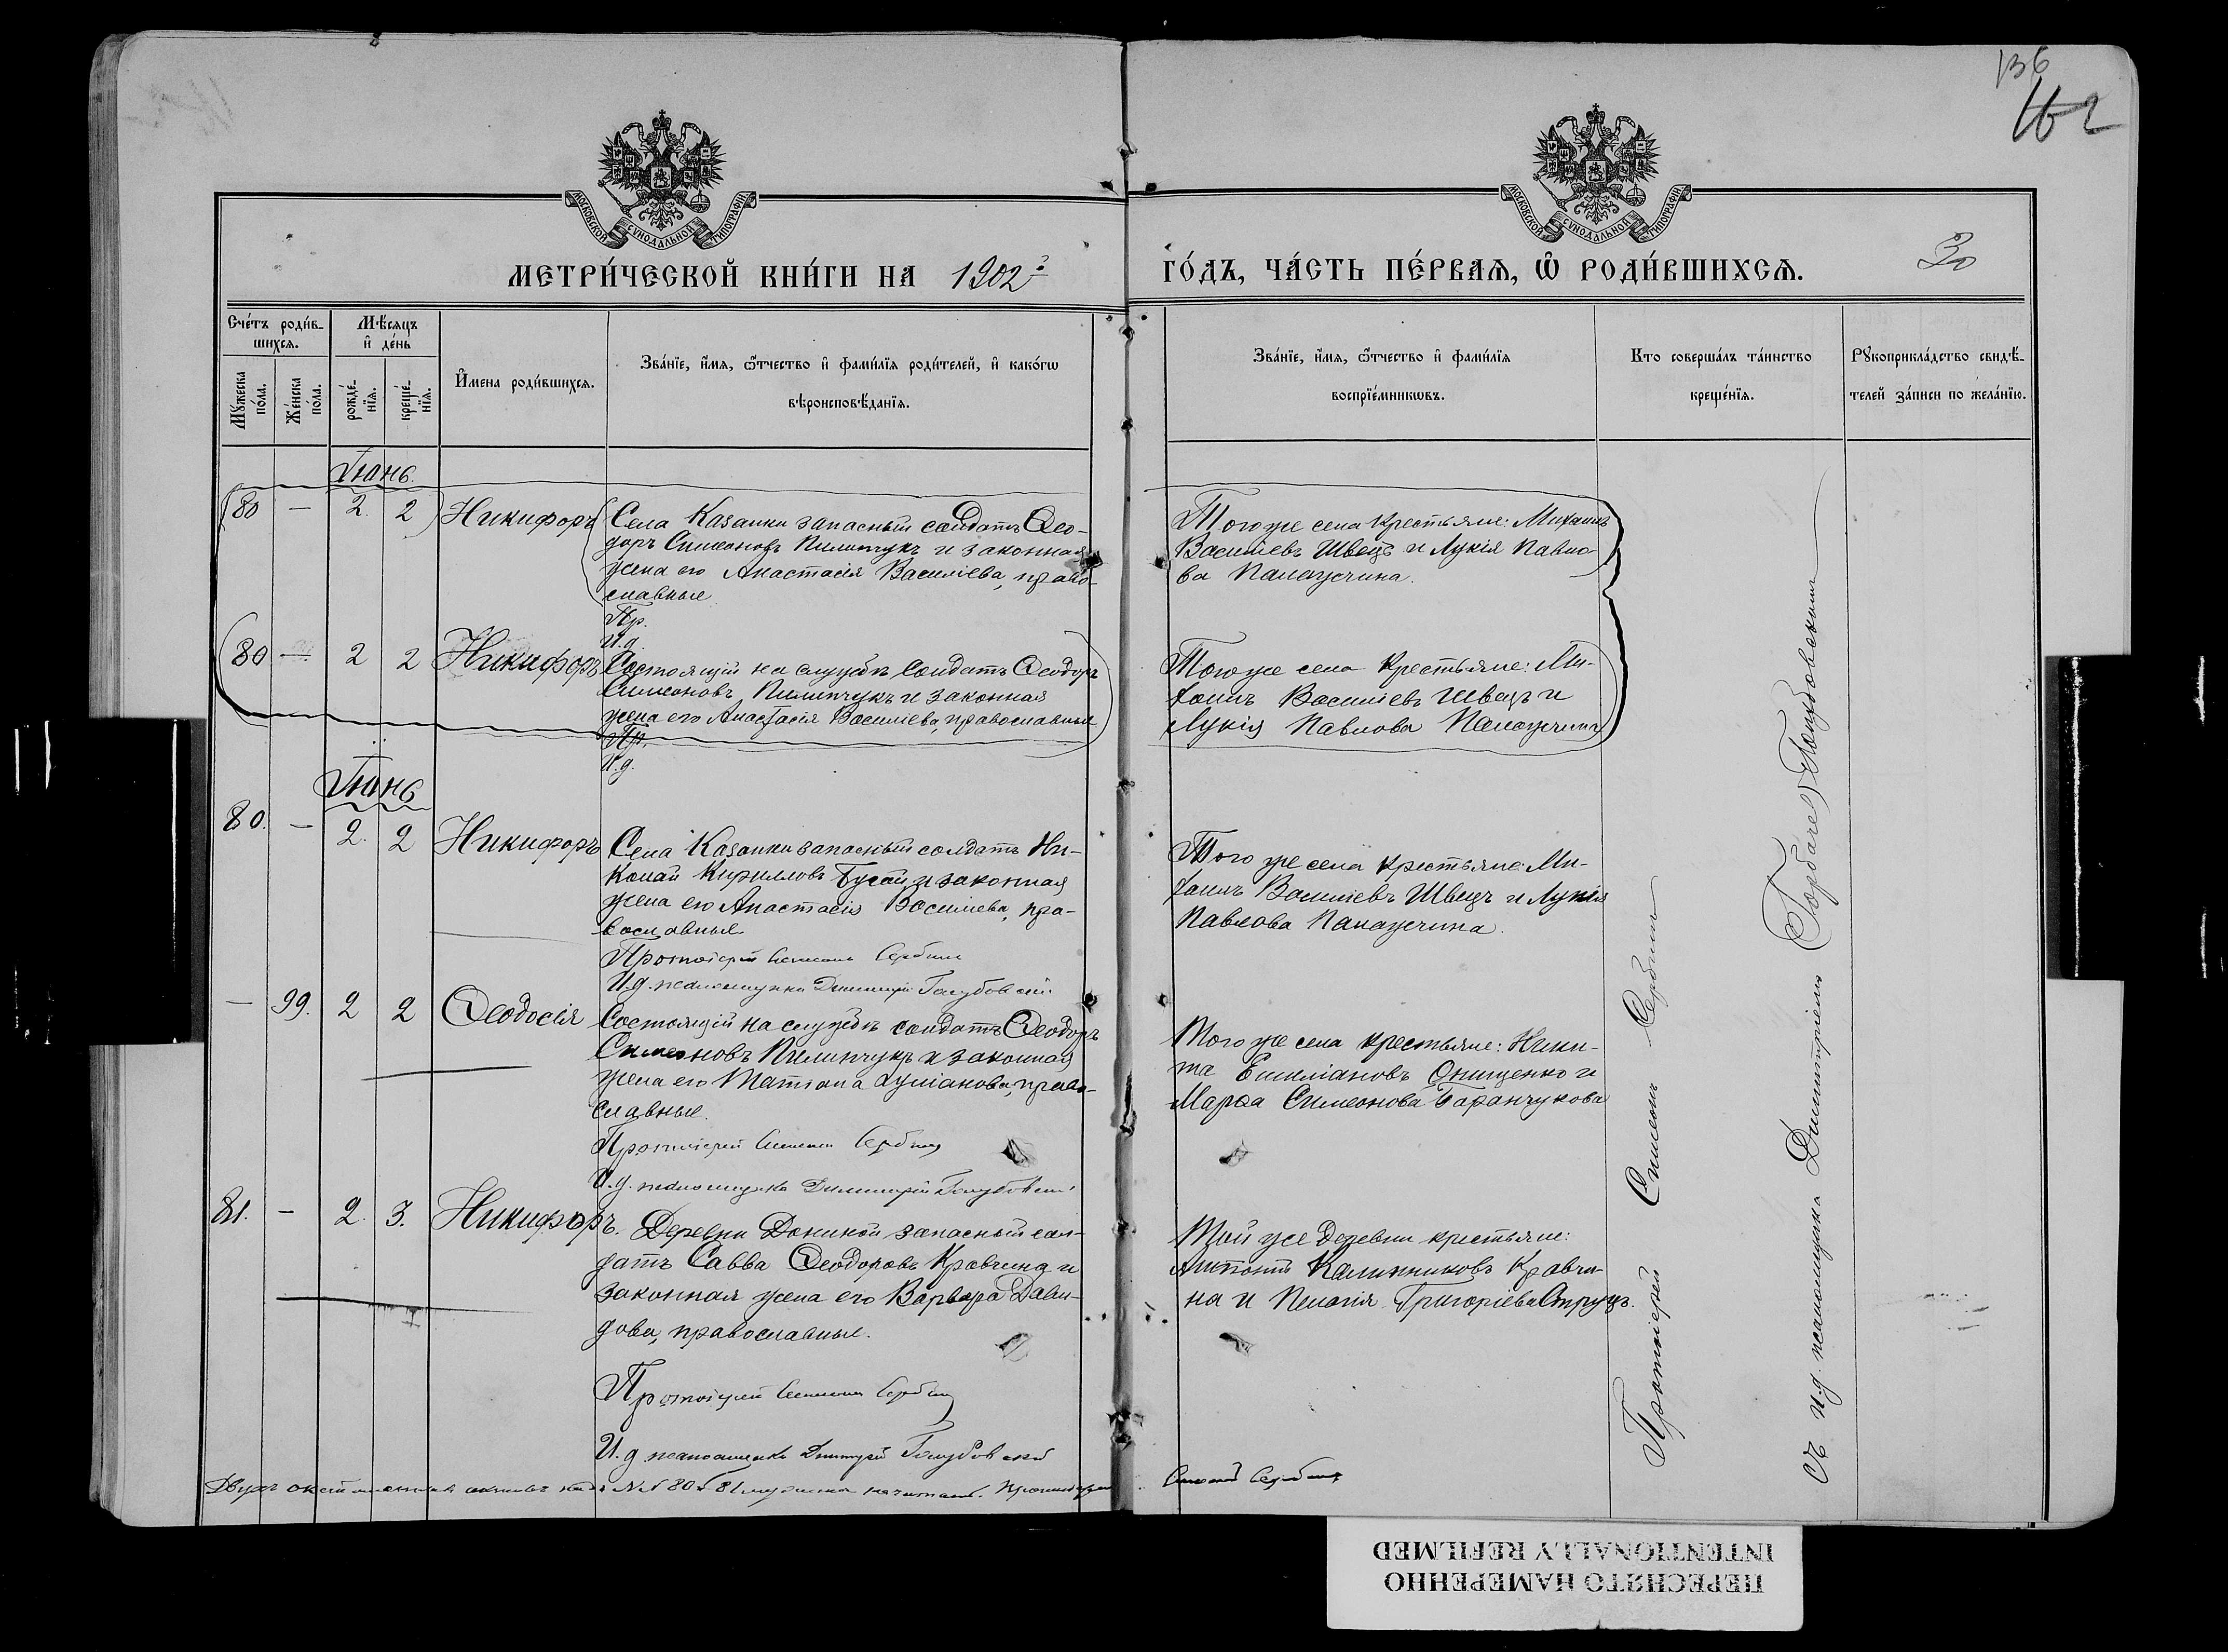 136
162
МОСКОВСКОЙ СѴНОДАЛЬНОЙ ТИПОГРАФІИ
МОСКОВСКОЙ СѴНОДАЛЬНОЙ ТИПОГРАФІИ
МЕТРИ́ЧЕСКОЙ КНИ́ГИ НА 1902 г.
ГО́ДЪ, ЧА́СТЬ ПЕ́РВАѦ, Ѿ РОДИ́ВШИХСѦ.
30
Счетъ родив-
шихсѧ.
Мѣсѧцъ
и день
Мꙋжеска
пола.
Женска
пола.
рожде-
нїѧ.
креще-
нїѧ.
Имена родившихсѧ.
Званїе, имѧ, ѿчество и фамилїѧ родителей, и какогѡ
вѣроисповѣданїѧ.
Званїе, имѧ, ѿчество и фамилїѧ
воспрїемникѡвъ.
Кто совершалъ таинство
крещенїѧ.
Рꙋкоприкладство свидѣ-
телей записи по желанїю.
Іюнь.
80 — 2. 2 Никифоръ
Села Казанки запасный солдатъ Ѳео-
доръ Симеоновъ Пилипчукъ и законная
жена его Анастасія Василіева, право-
славные
Пр.
И.д.
Того же села крестьяне: Михаилъ
Василіевъ Швецъ и Лукія Павло-
ва
80 — 2 2 Никифоръ
Состоящій на службѣ солдатъ Ѳеодоръ
Симеоновъ Пилипчукъ и законная
жена его Анастасія Василіева, православные
Пр.
И.д.
Того же села крестьяне: Ми-
хаилъ Василіевъ Швецъ и
Лукія Павлова
Іюнь
80. — 2. 2 Никифоръ
Села Казанки запасный солдатъ Ни-
колай Кирилловъ и законная
жена его Анастасія Василіева, пра-
вославные.
Протоіерей Симеонъ Сербинъ
И.д. псаломщика Димитрій Голубовскій
Того же села крестьяне: Ми-
хаилъ Василіевъ Швецъ и Лукія
Павлова
— 99. 2 2 Ѳеодосія
Состоящій на службѣ солдатъ Ѳеодоръ
Симеоновъ Пилипчукъ и законная
жена его Татіана право-
славные.
Протоіерей Симеонъ Сербинъ
И.д. псаломщика Димитрій Голубовскій
Того же села крестьяне: Ники-
та Емиліановъ Онищенко и
Марѳа Симеонова Баранчукова
81. — 2. 3. Никифоръ.
Деревни запасный сол-
датъ Савва Ѳеодоровъ Кравчина и
законная жена его Варвара Дави-
дова, православные.
Протоіерей Симеонъ Сербинъ
И.д. псаломщика Димитрій Голубовскій
Той же деревни крестьяне:
Антонъ Калинниковъ Кравчи-
на и Пелагія Григоріева
Протоіерей Симеонъ Сербинъ
съ и.д. псаломщика Димитріемъ (Горбаче) Голубовскимъ
№№ 80 и 81 Протоіерей
Симеонъ Сербинъ
ПЕРЕСНЯТО НАМЕРЕННО
INTENTIONALLY REFILMED